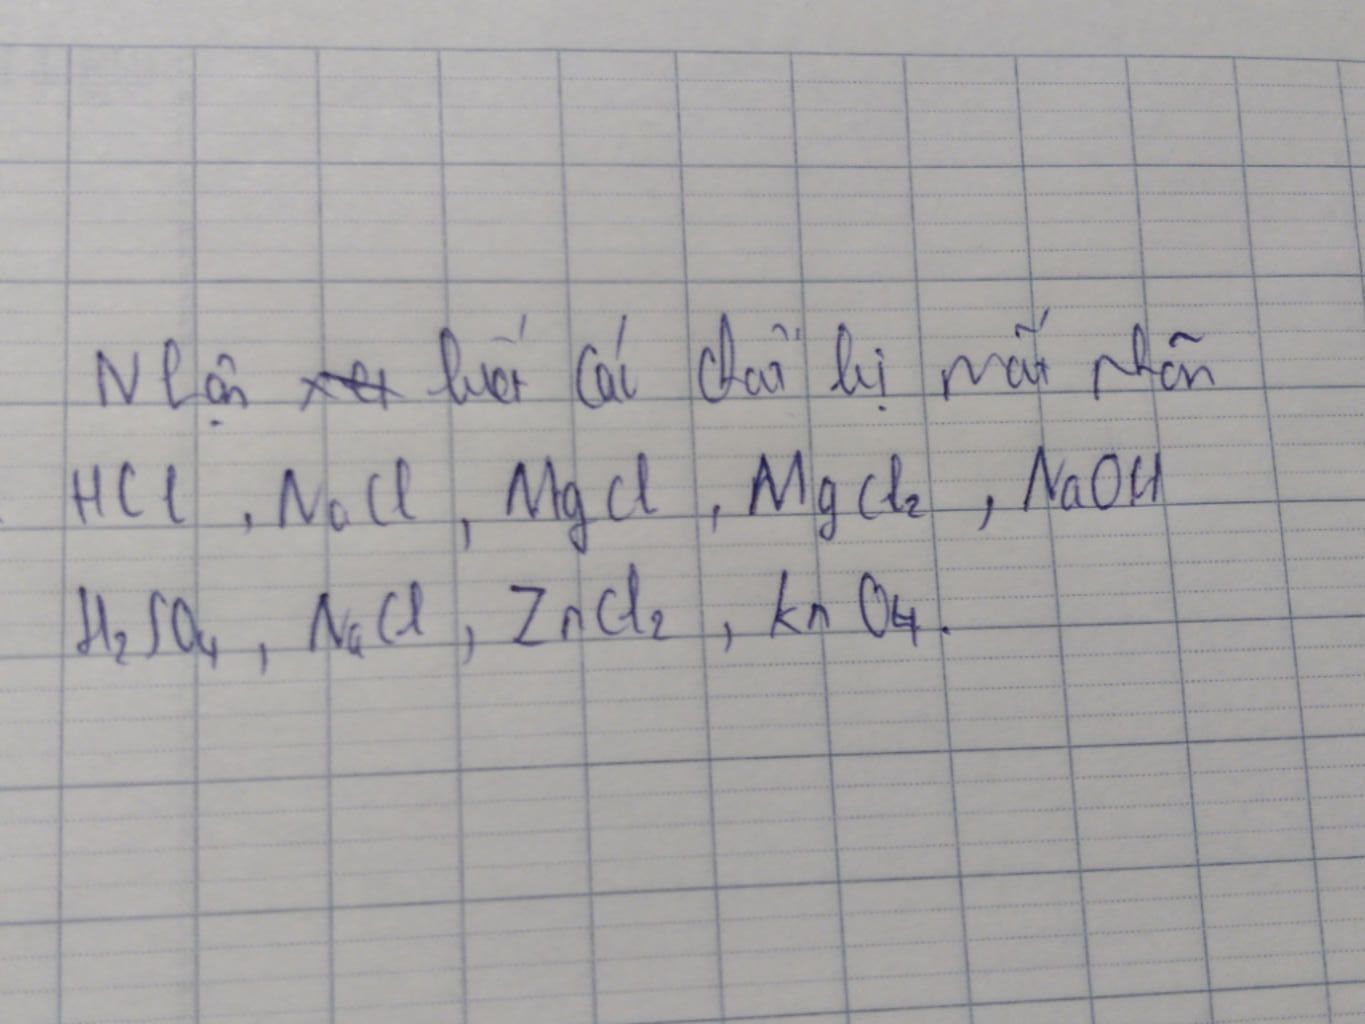 Nhận biết các chất bị mất nhãn
HCl, NaCl, MgCl, MgCl₂, NaOH
H₂SO₄, NaCl, ZnCl₂, knO₄.